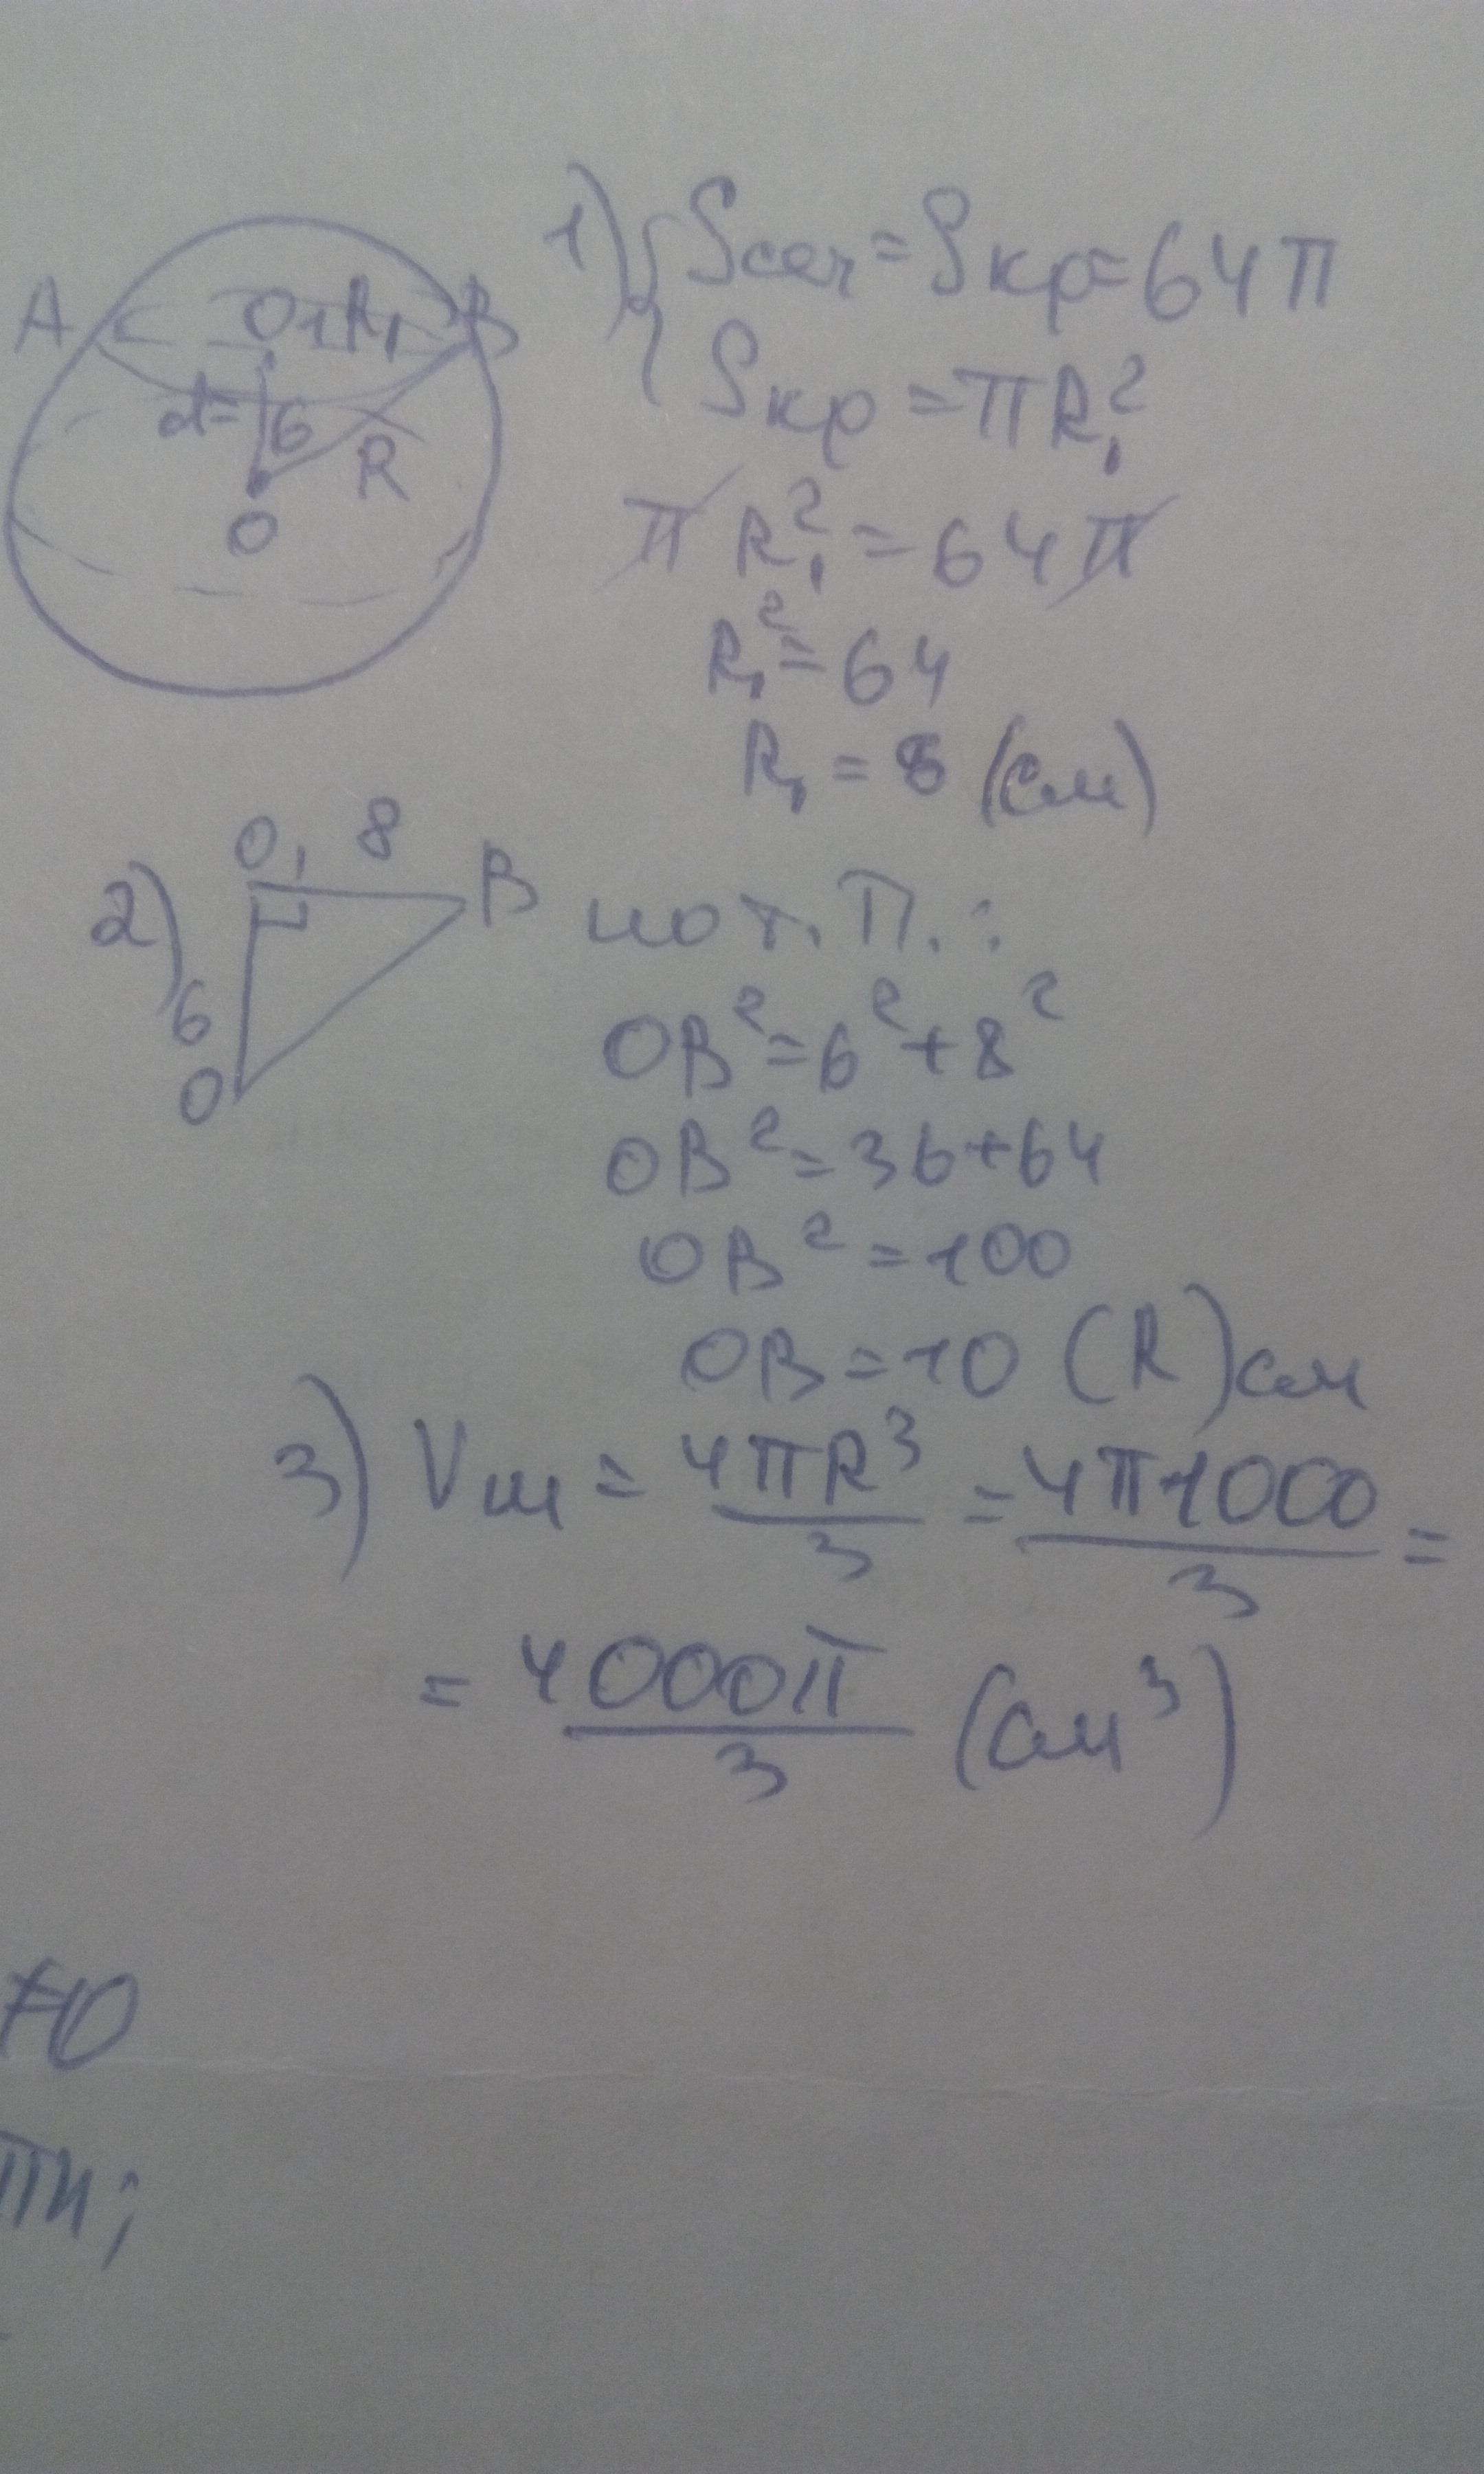 A O₁ R₁ B
d= 6
R
O
1) { Sсеч = Sкр = 64π
Sкр = πR₁²
π R₁² = 64π
R₁² = 64
R₁ = 8 (см)
2) O₁ 8 B
6
O
по т. П. :
OB² = 6² + 8²
OB² = 36 + 64
OB² = 100
OB = 10 (R) см
3) Vш = 4πR³/3 = 4π1000/3 =
= 4000π/3 (см³)
≠0
πn;